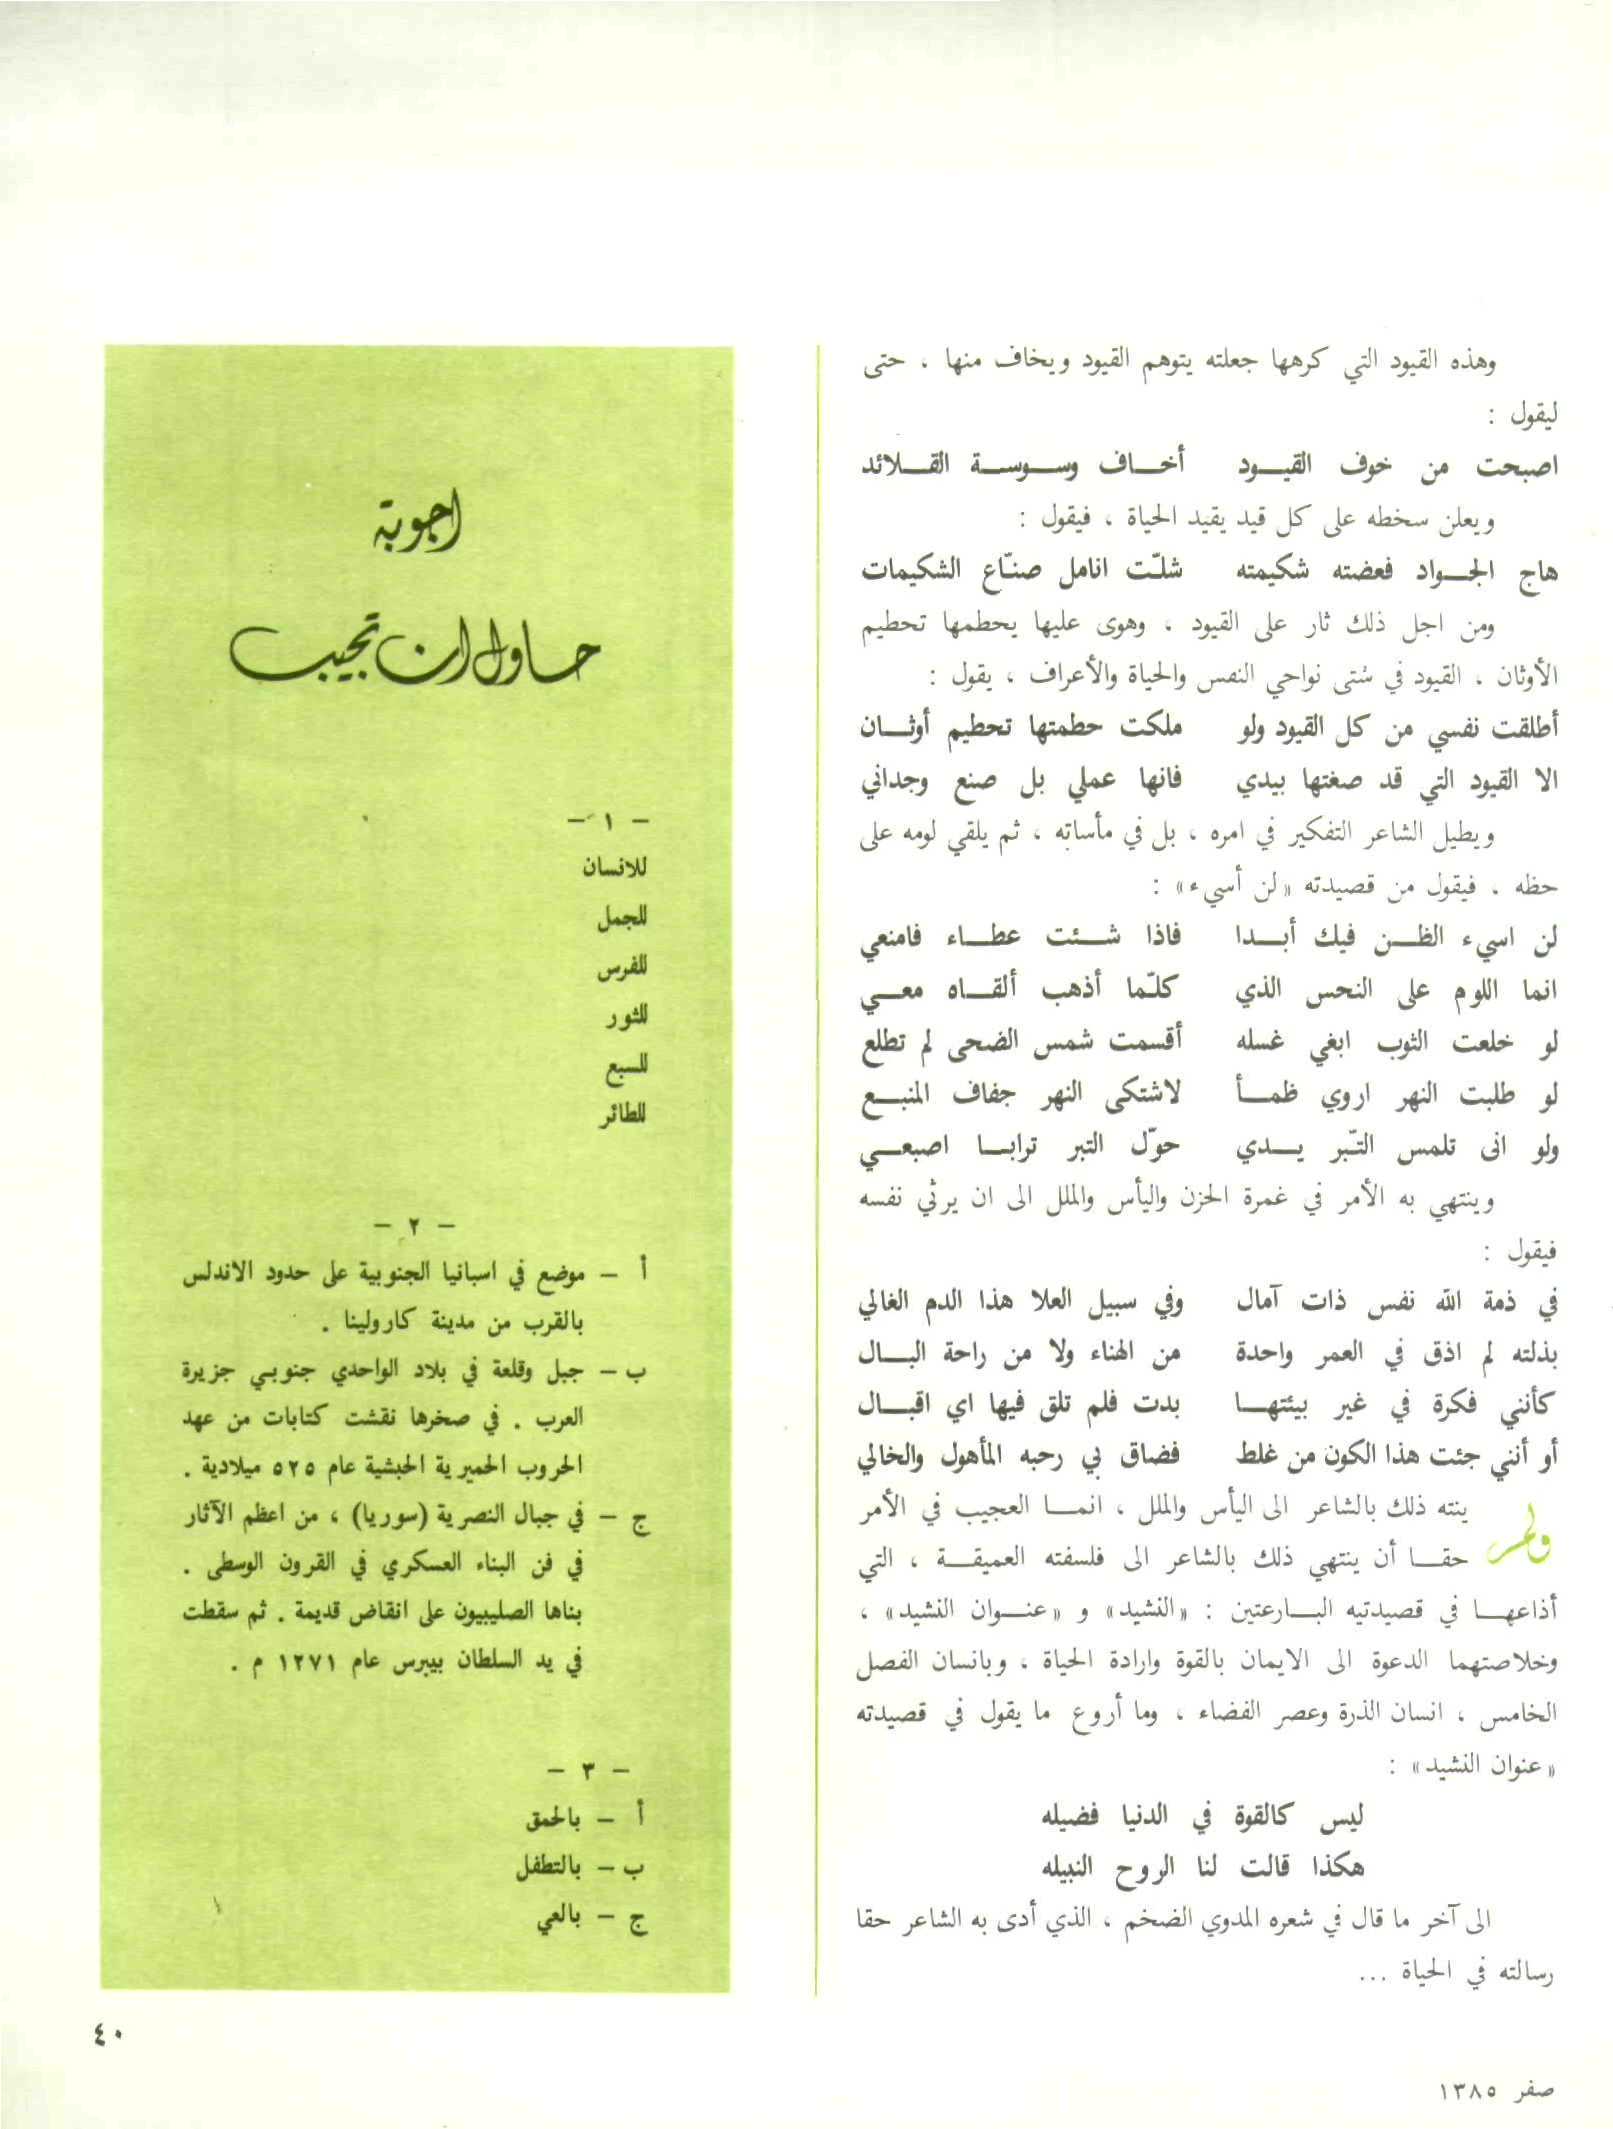 وهذه القيود التي كرهها جعلته يتوهم القيود ويخاف منها ، حتى
ليقول :
اصبحت من خوف القيـــود أخـــاف وســـوســـة القـــلائد
ويعلن سخطه على كل قيد يقيد الحياة ، فيقول :
هاج الجـــواد فعضته شكيمته شلّت انامل صنّاع الشكيمات
ومن اجل ذلك ثار على القيود ، وهوى عليها يحطمها تحطيم
الأوثان . القيود في شتى نواحي النفس والحياة والأعراف ، يقول :
أطلقت نفسي من كل القيود ولو ملكت حطمتها تحطيم أوثـــان
الا القيود التي قد صغتها بيدي فانها عملي بل صنع وجداني
ويطيل الشاعر التفكير في امره ، بل في مأساته ، ثم يلقي لومه على
حظه . فيقول من قصيدته «لن أسيء» :
لن اسيء الظـــن فيك أبـــدا فاذا شـــئت عطـــاء فامنعي
انما اللوم على النحس الذي كلّما أذهب ألقـــاه معـــي
لو خلعت الثوب ابغي غسله أقسمت شمس الضحى لم تطلع
لو طلبت النهر اروي ظمـــأ لاشتكى النهر جفاف المنبـــع
ولو انى تلمس التّبر يـــدي حوّل التبر ترابـــا اصبعـــي
وينتهي به الأمر في غمرة الحزن واليأس والملل الى ان يرثي نفسه
فيقول :
في ذمة الله نفس ذات آمال وفي سبيل العلا هذا الدم الغالي
بذلته لم اذق في العمر واحدة من الهناء ولا من راحة البـــال
كأنني فكرة في غير بيئتهـــا بدت فلم تلق فيها اي اقبـــال
أو أنني جئت هذا الكون من غلط فضاق بي رحبه المأهول والخالي
ولم ينته ذلك بالشاعر الى اليأس والملل ، انمـــا العجيب في الأمر
حقـــا أن ينتهي ذلك بالشاعر الى فلسفته العميقـــة ، التي
أذاعهـــا في قصيدتيه البـــارعتين : «النشيد» و «عنـــوان النشيد» ،
وخلاصتهما الدعوة الى الايمان بالقوة وارادة الحياة ، وبانسان الفصل
الخامس ، انسان الذرة وعصر الفضاء ، وما أروع ما يقول في قصيدته
«عنوان النشيد» :
ليس كالقوة في الدنيا فضيله
هكذا قالت لنا الروح النبيله
الى آخر ما قال في شعره المدوي الضخم ، الذي أدى به الشاعر حقا
رسالته في الحياة ...
اجوبة
حاول ان تجيب
– ١ –
للانسان
للجمل
للفرس
للثور
للسبع
للطائر
– ٢ –
أ – موضع في اسبانيا الجنوبية على حدود الاندلس
بالقرب من مدينة كارولينا .
ب – جبل وقلعة في بلاد الواحدي جنوبي جزيرة
العرب . في صخرها نقشت كتابات من عهد
الحروب الحميرية الحبشية عام ٥٢٥ ميلادية .
ج – في جبال النصرية (سوريا) ، من اعظم الآثار
في فن البناء العسكري في القرون الوسطى .
بناها الصليبيون على انقاض قديمة . ثم سقطت
في يد السلطان بيبرس عام ١٢٧١ م .
– ٣ –
أ – بالحمق
ب – بالتطفل
ج – بالعي
٤٠
صفر ١٣٨٥